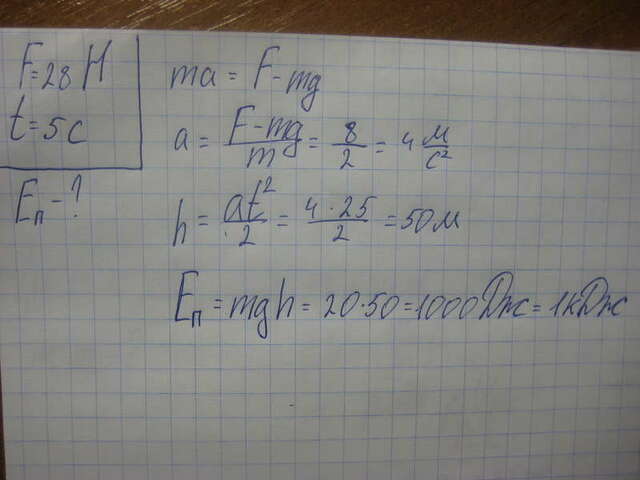 F=28 Н
t=5с
Eп-?
ma = F-mg
a = F-mg/m = 8/2 = 4 м/с²
h = at²/2 = 4·25/2 = 50м
Eп = mgh = 20·50=1000Дж=1кДж